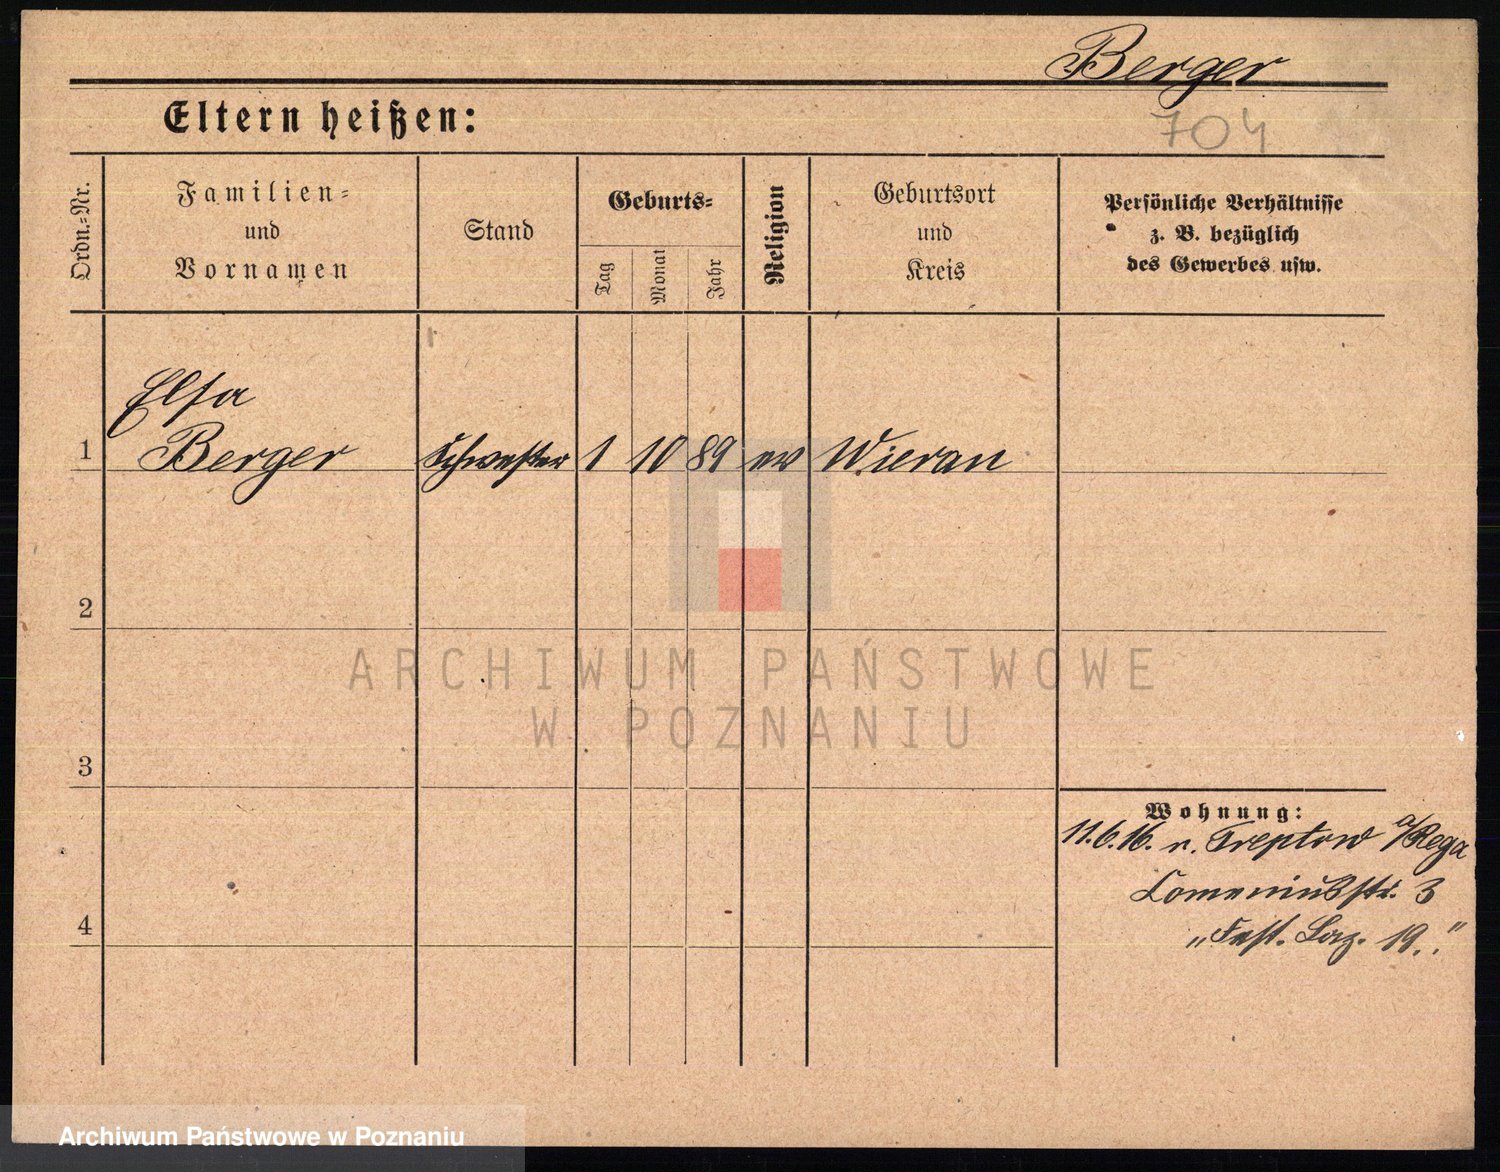 Berger
704
Eltern heißen:
Ordn.=Nr.
Familien=
und
Vornamen
Stand
Geburts=
Tag
Monat
Jahr
Religion
Geburtsort
und
Kreis
Persönliche Verhältnisse
z. B. bezüglich
des Gewerbes usw.
Elsa
1 Berger Schwester 1 10 89 ev Wieran
2
ARCHIWUM PAŃSTWOWE
W POZNANIU
3
Wohnung:
11.6.16. n. Treptow a/Rega
Comeniusstr. 3
4
"Fest. Laz. 19."
Archiwum Państwowe w Poznaniu